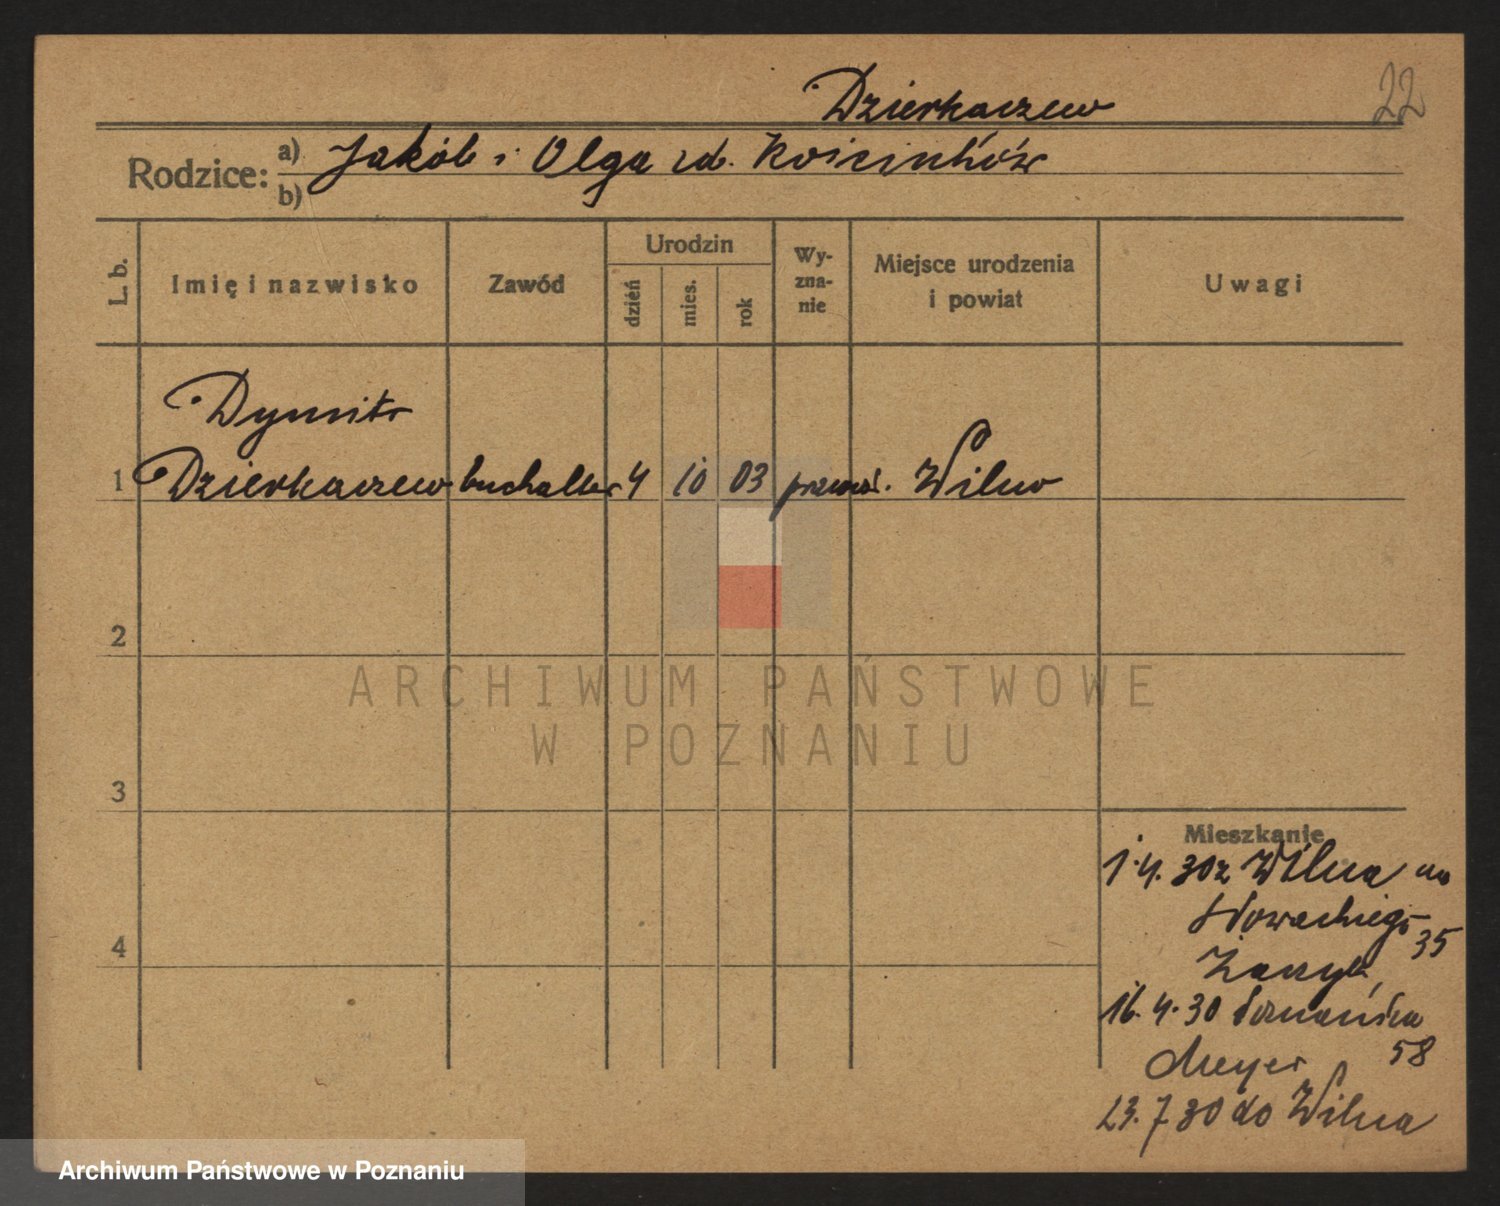 Dzierkaczew
22
Rodzice: a) Jakób i Olga zd.
b)
L. b.
Imię i nazwisko
Zawód
Urodzin
dzień
mies.
rok
Wy-
zna-
nie
Miejsce urodzenia
i powiat
Uwagi
Dymitr
1 Dzierkaczew buchalter 4 10 03 prawosł. Wilno
2
ARCHIWUM PAŃSTWOWE
W POZNANIU
3
Mieszkanie
1.4.30 z Wilna na
Słowackiego
35
4
16.4.30 Poznańska
Meyer 58
23.7 30 do Wilna
Archiwum Państwowe w Poznaniu